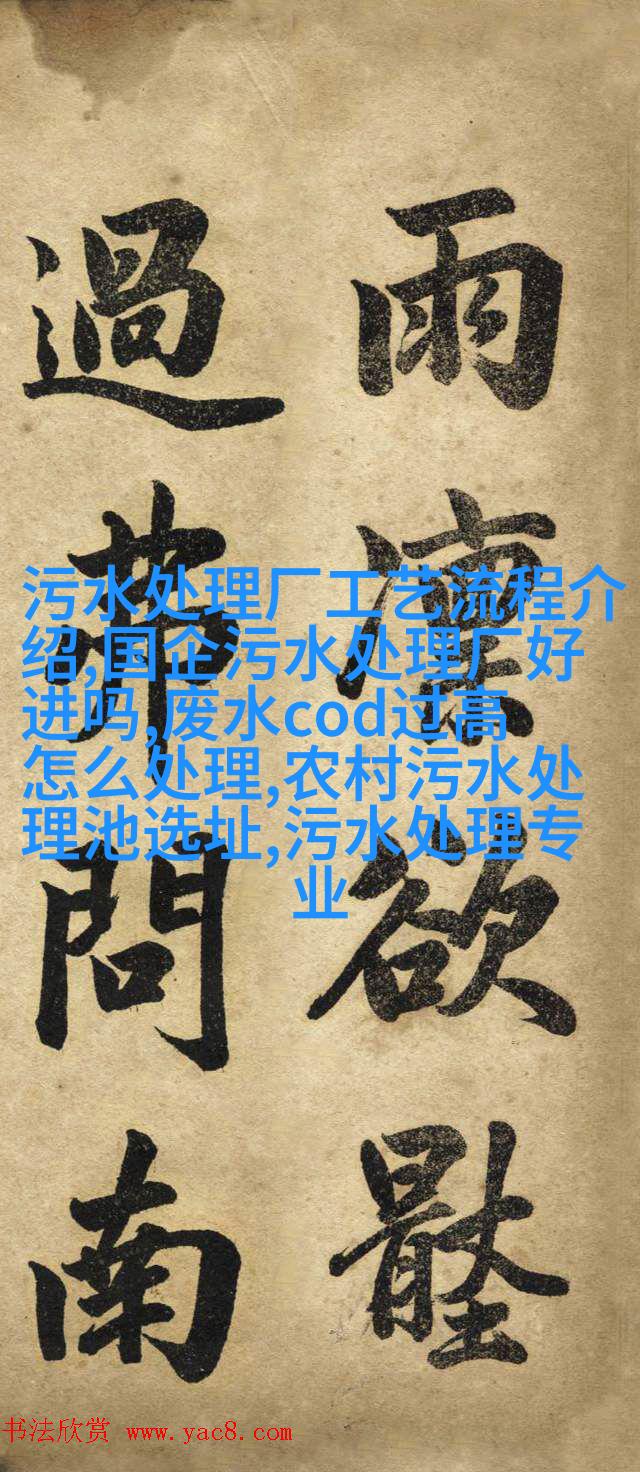 雨凜欲
過問南
污水处理厂工艺流程介
绍,国企污水处理厂好
进吗,废水cod过高
怎么处理,农村污水处
理池选址,污水处理专
业
书法欣赏 www.yac8.com